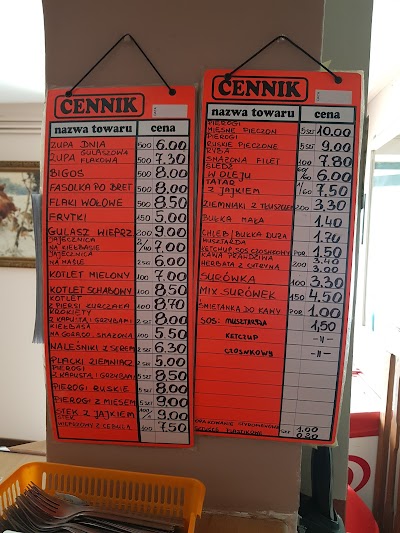 CENNIK
nazwa towaru cena
ZUPA DNIA 500 6.00
ZUPA GULASZOWA FLAKOWA 500 7.30
BIGOS 500 8.00
FASOLKA PO BRET 500 8.00
FLAKI WOŁOWE 500 8.50
FRYTKI 450 5.00
GULASZ WIEPRZ 200 9.00
JAJECZNICA NA KIEŁBASIE 7.00
JAJECZNICA NA MAŚLE 6.00
KOTLET MIELONY 100 7.00
KOTLET SCHABOWY 100 8.50
KOTLET Z PIERSI KURCZAKA 100 8.70
KROKIETY Z KAPUSTĄ I GRZYBAMI 8.00
KIEŁBASA NA GORĄCO, SMAŻONA 5.50
NALEŚNIKI Z SEREM 6.30
PLACKI ZIEMNIACZ 5.00
PIEROGI Z KAPUSTĄ I GRZYBAMI 8.50
PIEROGI RUSKIE 8.00
PIEROGI Z MIĘSEM 9.00
STEK Z JAJKIEM 9.00
STEK WIEPRZOWY Z CEBULĄ 7.50
CENNIK
nazwa towaru cena
PIEROGI MIĘSNE PIECZON 5szt 10.00
PIEROGI RUSKIE PIECZONE 5szt 9.00
RYBA SMAŻONA FILET 100 7.80
ŚLEDŹ W OLEJU 6.00
TATAR Z JAJKIEM 7.50
ZIEMNIAKI Z TŁUSZCZEM 200 3.30
BUŁKA MAŁA 1.40
CHLEB/BUŁKA DUŻA 1.70
MUSZTARDA KETCHUP SOS CZOSNKOWY POR 1.50
KAWA PRAWDZIWA 200
HERBATA Z CYTRYNĄ 200 3.00
SURÓWKA 100 3.30
MIX SURÓWEK 150 4.50
ŚMIETANKA DO KAWY POR. 1.00
SOS: MUSZTARDA 1,50
KETCHUP -||-
CZOSNKOWY -||-
OPAKOWANIE STYROPIANOWE 1.00
PLASTIKOWE 0.80